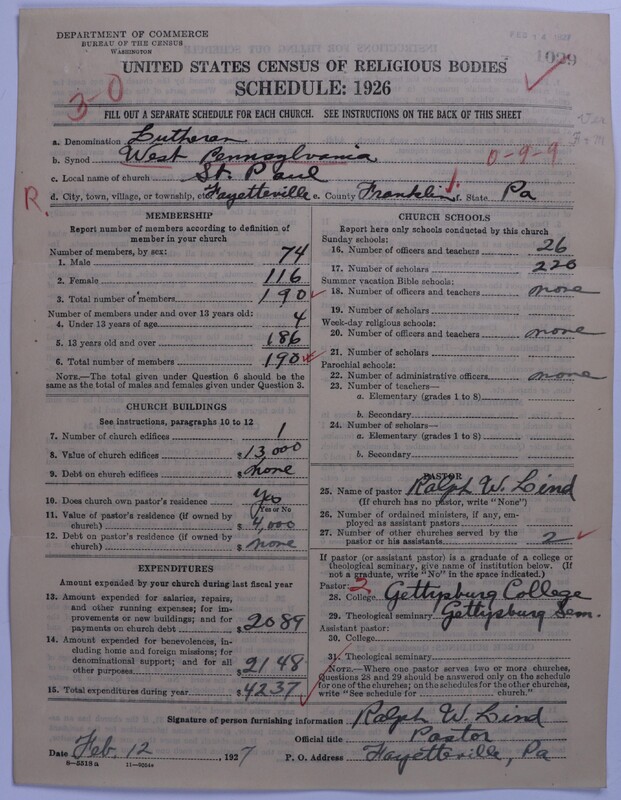 DEPARTMENT OF COMMERCE
BUREAU OF THE CENSUS
WASHINGTON
1029
UNITED STATES CENSUS OF RELIGIOUS BODIES
SCHEDULE: 1926
3-0
FILL OUT A SEPARATE SCHEDULE FOR EACH CHURCH. SEE INSTRUCTIONS ON THE BACK OF THIS SHEET
a. Denomination Lutheran
b. Synod West Pennsylvania 0-9-9
c. Local name of church St. Paul
R. d. City, town, village, or township, or Fayetteville e. County Franklin f. State Pa
MEMBERSHIP
Report number of members according to definition of member in your church
Number of members, by sex:
1. Male 74
2. Female 116
3. Total number of members 190
Number of members under and over 13 years old:
4. Under 13 years of age 4
5. 13 years old and over 186
6. Total number of members 190
NOTE.—The total given under Question 6 should be the
same as the total of males and females given under Question 3.
CHURCH BUILDINGS
See instructions, paragraphs 10 to 12
7. Number of church edifices 1
8. Value of church edifices $ 13,000
9. Debt on church edifices $ none
10. Does church own pastor's residence Yes
Yes or No
11. Value of pastor's residence (if owned by
church) $ 4,000
12. Debt on pastor's residence (if owned by
church) $ none
EXPENDITURES
Amount expended by your church during last fiscal year
13. Amount expended for salaries, repairs,
and other running expenses; for im-
provements or new buildings; and for
payments on church debt $ 2089
14. Amount expended for benevolences, in-
cluding home and foreign missions; for
denominational support; and for all
other purposes $ 2148
15. Total expenditures during year $ 4237
CHURCH SCHOOLS
Report here only schools conducted by this church
Sunday schools:
16. Number of officers and teachers 26
17. Number of scholars 220
Summer vacation Bible schools:
18. Number of officers and teachers none
19. Number of scholars
Week-day religious schools:
20. Number of officers and teachers none
21. Number of scholars
Parochial schools:
22. Number of administrative officers none
23. Number of teachers—
a. Elementary (grades 1 to 8)
b. Secondary
24. Number of scholars—
a. Elementary (grades 1 to 8)
b. Secondary
PASTOR
25. Name of pastor Ralph W. Lind
(If church has no pastor, write "None")
26. Number of ordained ministers, if any, em-
ployed as assistant pastors
27. Number of other churches served by the
pastor or his assistants 2
If pastor (or assistant pastor) is a graduate of a college or
theological seminary, give name of institution below. (If
not a graduate, write "No" in the space indicated.)
Pastor: 2
28. College Gettysburg College
29. Theological seminary Gettysburg Sem.
Assistant pastor:
30. College
31. Theological seminary
NOTE.—Where one pastor serves two or more churches,
Questions 28 and 29 should be answered only on the schedule
for one of the churches; on the schedules for the other churches,
write "See schedule for church."
Signature of person furnishing information Ralph W. Lind
Official title Pastor
Date Feb. 12, 1927 P. O. Address Fayetteville, Pa
8-5518 a